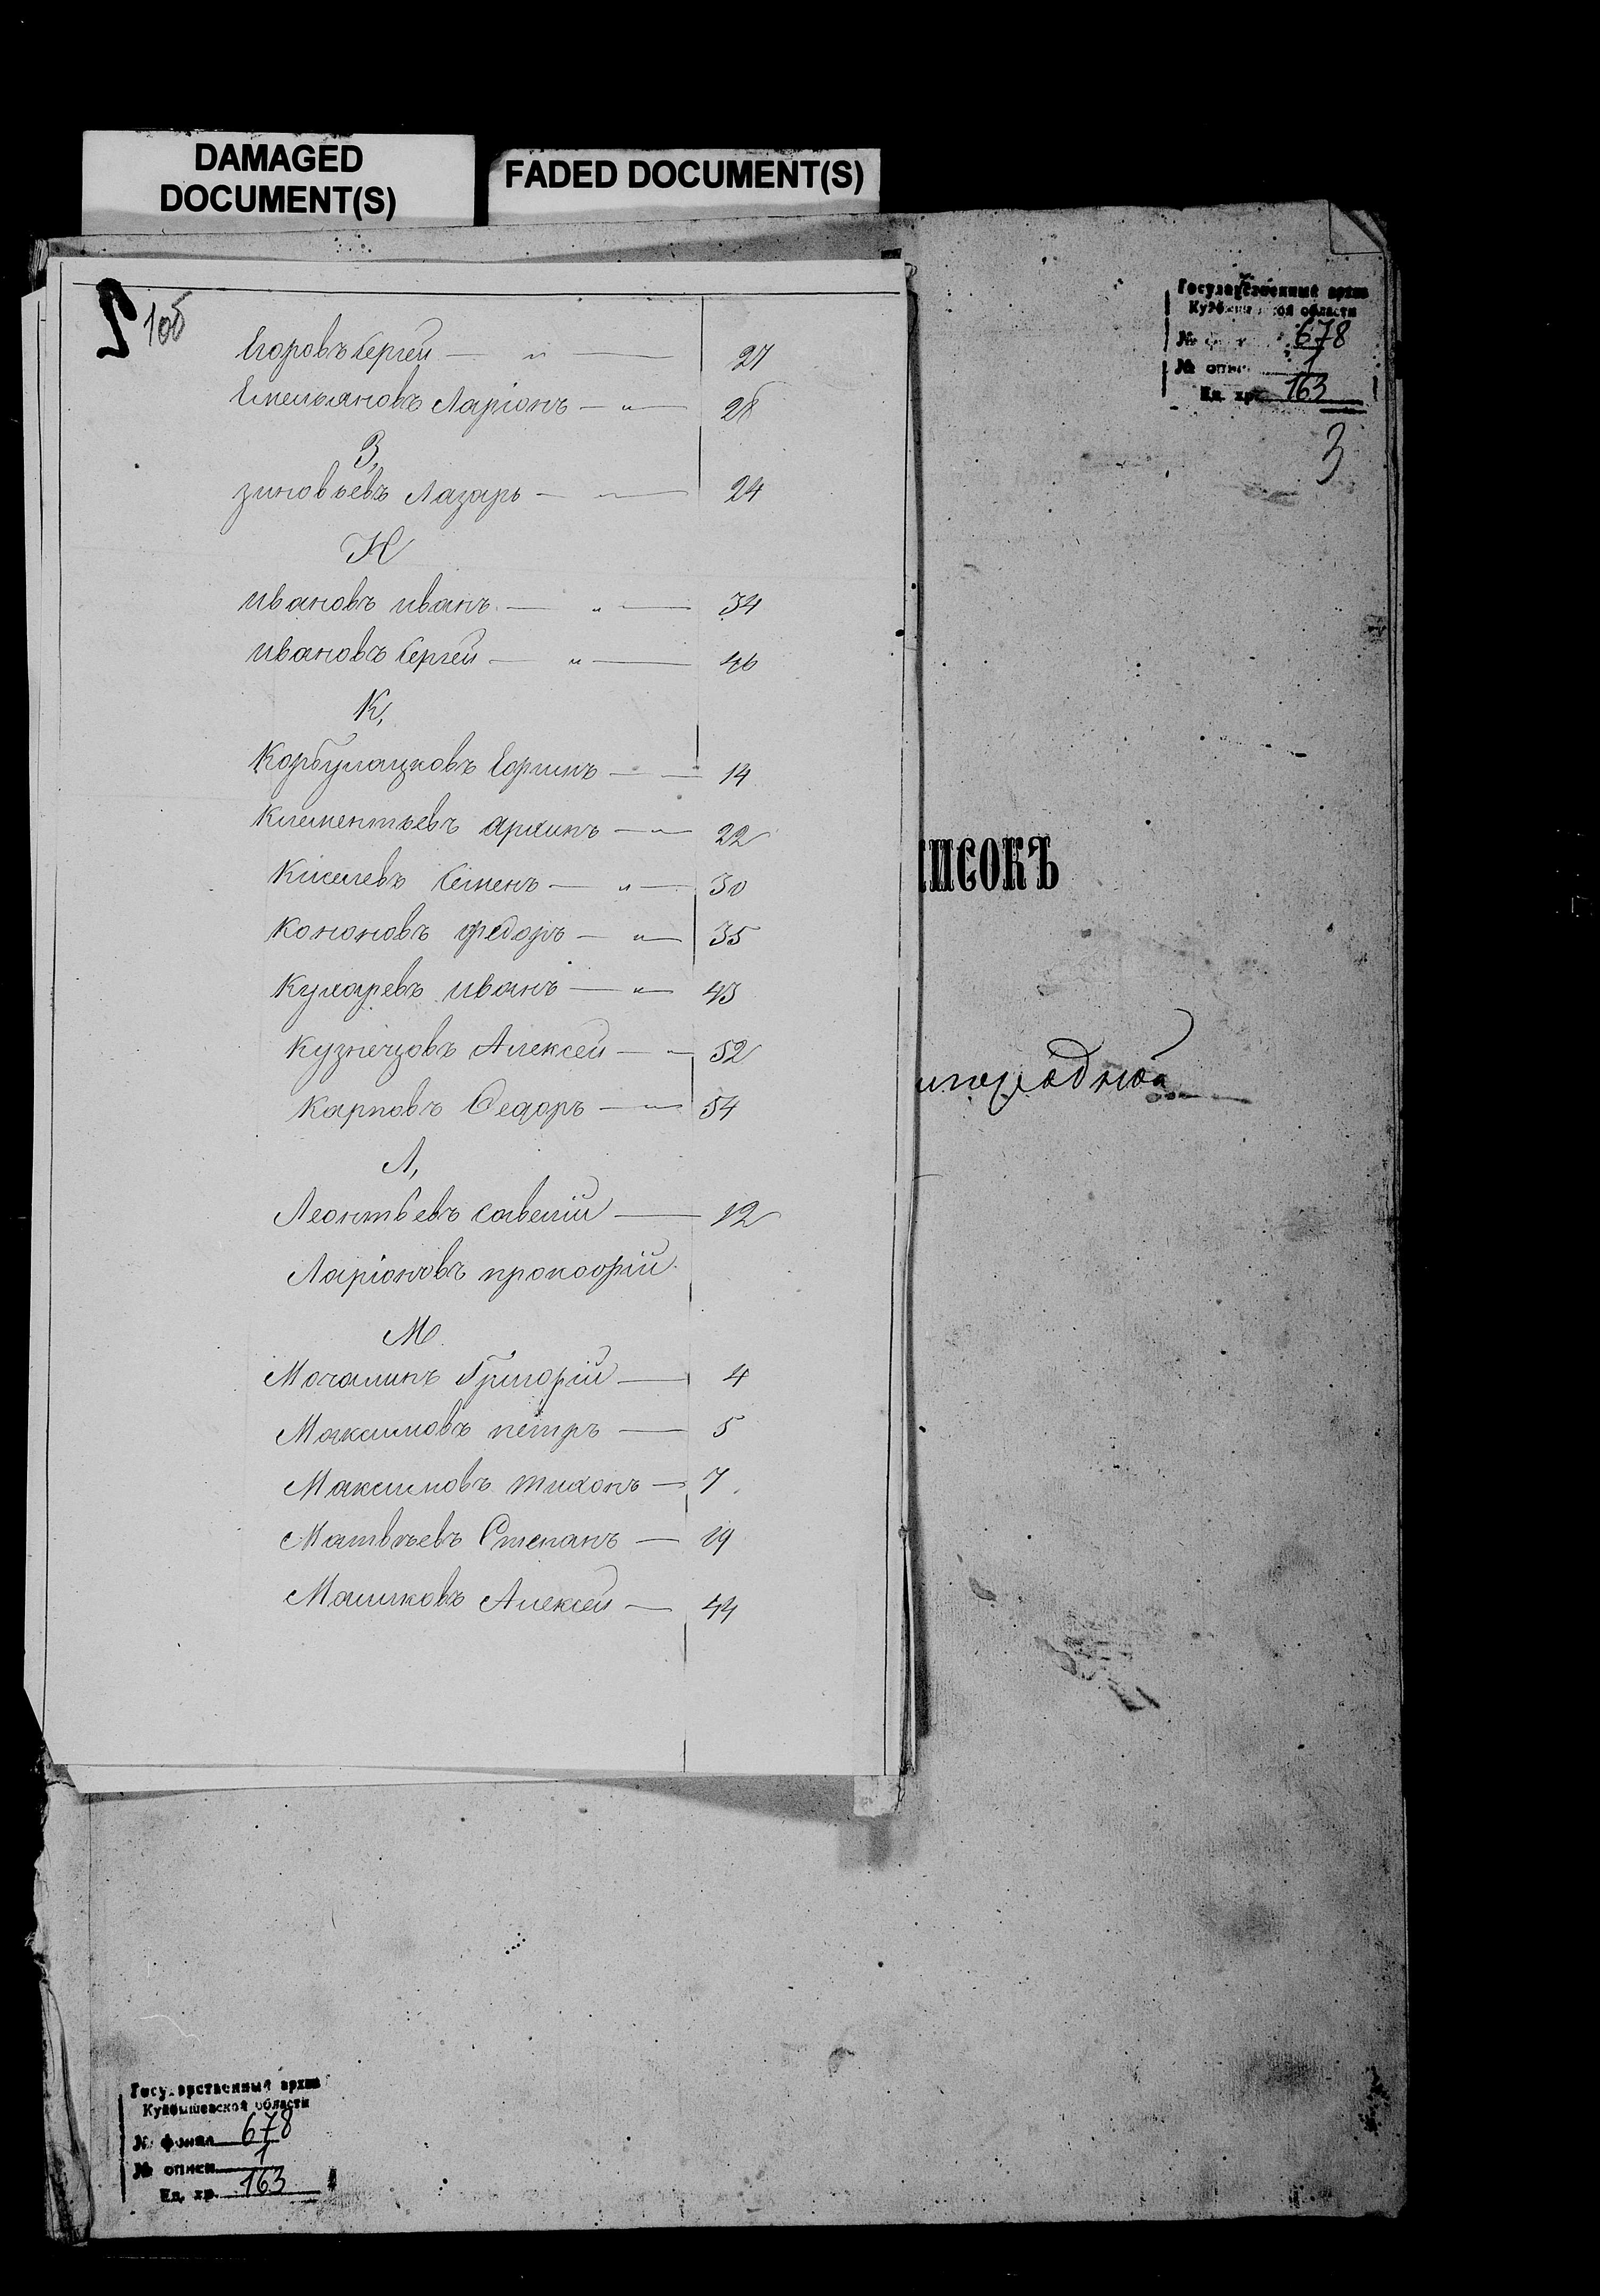 DAMAGED
DOCUMENT(S)
FADED DOCUMENT(S)
1об
Егоровъ Сергей — " — 27
Емельяновъ Ларіонъ — " — 28
З,
Зиновьевъ Лазарь — " — 24
И
Ивановъ Иванъ — " — 34
Ивановъ Сергей — " — 46
К,
14
Клементьевъ Архипъ — " — 22
Киселевъ Семенъ — " — 30
Кононовъ Федоръ — " — 35
Кухаревъ Иванъ — " — 43
Кузнецовъ Алексей — " — 52
Карповъ Федоръ — " — 54
Л,
Леонтьевъ Савелій — 12
Ларіоновъ Прокофій.
М
Мочалинъ Григорій — 4
Максимовъ Петръ — 5
Максимовъ Тихонъ — 7
Матвѣевъ Степанъ — 19
Машковъ Алексей — 44
Государственный архив
Куйбышевской области
№ фонда 678
№ описи 1
Ед. хр. 163
3
ПИСОКЪ
Государственный архив
Куйбышевской области
№ фонда 678
№ описи 1
Ед. хр. 163